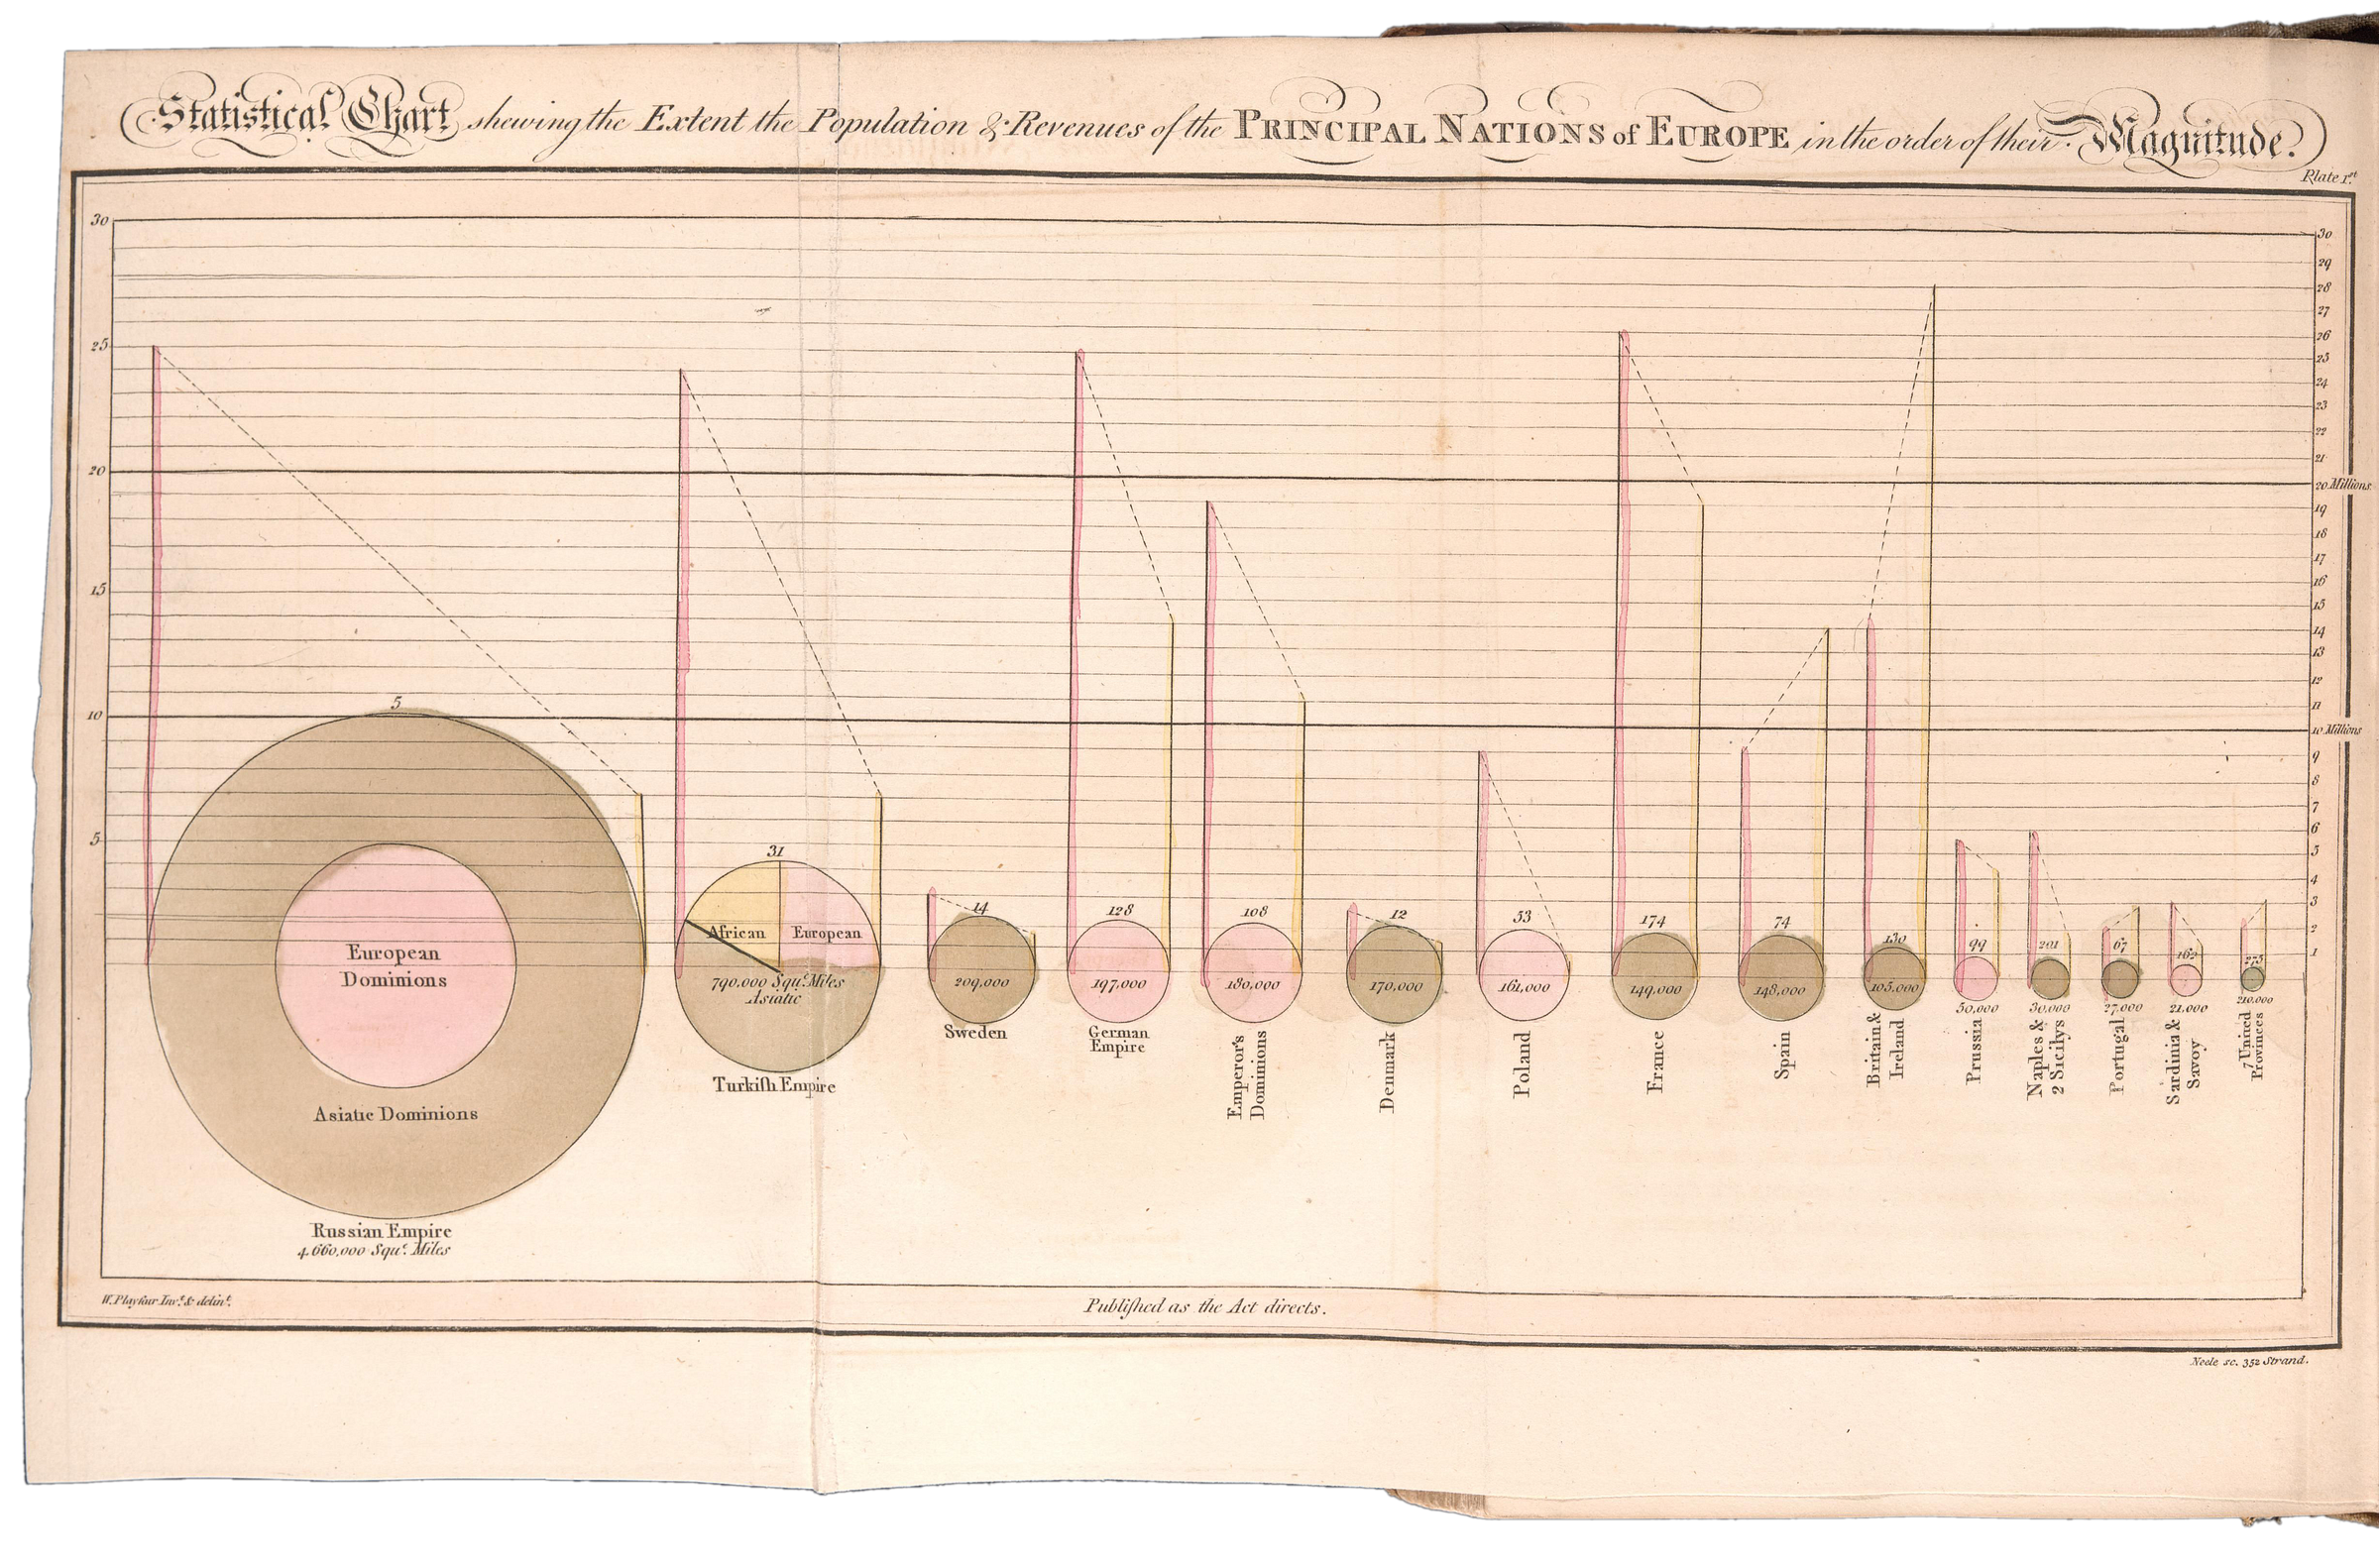 Statistical Chart shewing the Extent the Population & Revenues of the PRINCIPAL NATIONS of EUROPE in the order of their Magnitude.
Plate 1st
30
25
20
15
10
5
30
29
28
27
26
25
24
23
22
21
20 Millions
19
18
17
16
15
14
13
12
11
10 Millions
9
8
7
6
5
4
3
2
1
5
European
Dominions
Asiatic Dominions
Russian Empire
4.660,000 Sque. Miles
31
African
European
790.000 Sque. Miles
Asiatic
Turkiſh Empire
14
209,000
Sweden
128
197,000
German
Empire
108
180,000
Emperor's
Dominions
12
170,000
Denmark
53
161,000
Poland
174
149,000
France
74
148,000
Spain
130
105.000
Britain &
Ireland
99
50,000
Prussia
201
30,000
Naples &
2 Sicilys
67
27,000
Portugal
21.000
Sardinia &
Savoy
275
210.000
7 United
Provinces
W. Playfair Invt. & delint.
Publiſhed as the Act directs.
Neele sc. 352 Strand.